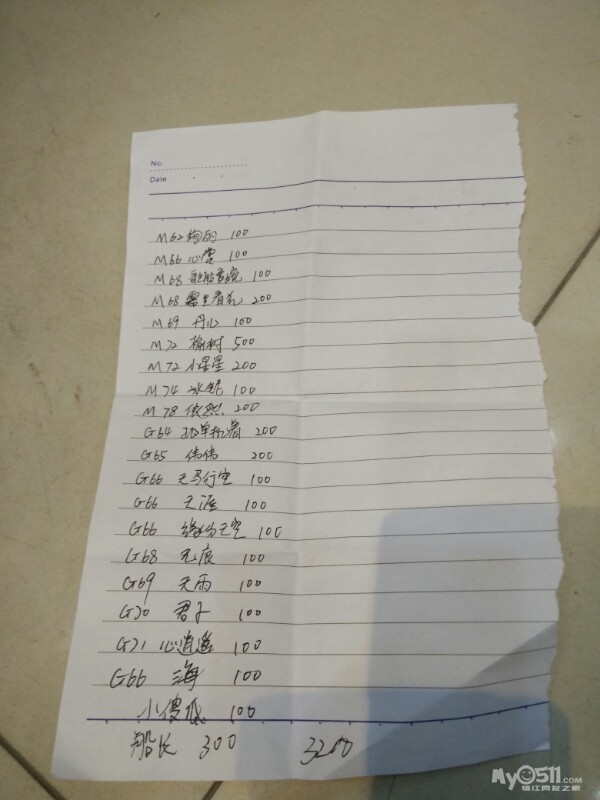 No.
Date
M62 100
M66 心雪 100
M68 100
M68 雾里看花 200
M69 丹心 100
M72 榆树 500
M72 小星星 200
M74 冰 100
M78 依然 200
G64 200
G65 伟伟 200
G66 天马行空 100
G66 天涯 100
G66 缘份天空 100
G68 无痕 100
G69 天雨 100
G70 君子 100
G71 心逍遥 100
G66 海 100
小傻瓜 100
船长 300 3200
My0511.com
镇江网友之家